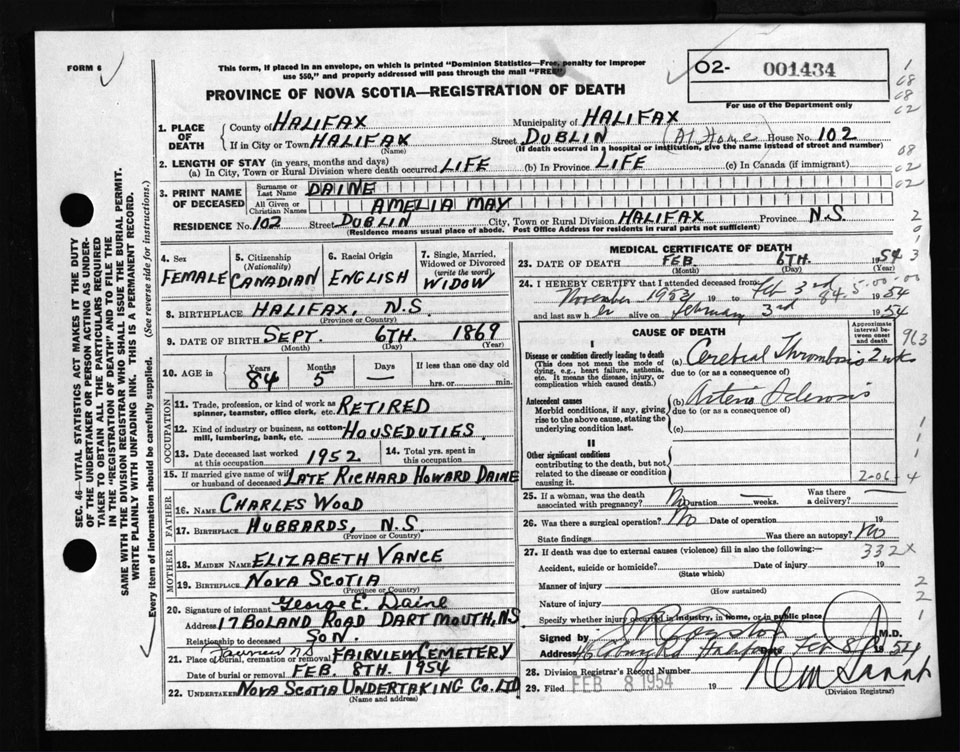 FORM 6
This form, if placed in an envelope, on which is printed "Dominion Statistics—Free, penalty for improper
use $50," and properly addressed will pass through the mail "FREE"
O2- 001434
For use of the Department only
PROVINCE OF NOVA SCOTIA—REGISTRATION OF DEATH
1. PLACE OF DEATH
County of HALIFAX Municipality of HALIFAX
If in City or Town HALIFAX (Name) Street DUBLIN (At Home) House No. 102
(If death occurred in a hospital or institution, give the name instead of street and number)
2. LENGTH OF STAY (in years, months and days)
(a) In City, Town or Rural Division where death occurred LIFE (b) In Province LIFE (c) In Canada (if immigrant)
3. PRINT NAME OF DECEASED
Surname or Last Name DAINE
All Given or Christian Names AMELIA MAY
RESIDENCE No. 102 Street DUBLIN City, Town or Rural Division HALIFAX Province N.S.
(Residence means usual place of abode. Post Office Address for residents in rural parts not sufficient)
4. Sex FEMALE
5. Citizenship (Nationality) CANADIAN
6. Racial Origin ENGLISH
7. Single, Married, Widowed or Divorced (write the word) WIDOW
8. BIRTHPLACE HALIFAX, N.S.
(Province or Country)
9. DATE OF BIRTH SEPT. 6TH. 1869
(Month) (Day) (Year)
10. AGE in Years 84 Months 5 Days — If less than one day old
hrs. or min.
OCCUPATION
11. Trade, profession, or kind of work as spinner, teamster, office clerk, etc. RETIRED
12. Kind of industry or business, as cotton-mill, lumbering, bank, etc. HOUSEDUTIES.
13. Date deceased last worked at this occupation 1952
14. Total yrs. spent in this occupation
15. If married give name of wife or husband of deceased LATE RICHARD HOWARD DAINE
FATHER
16. NAME CHARLES WOOD
17. BIRTHPLACE HUBBARDS, N.S.
(Province or Country)
MOTHER
18. MAIDEN NAME ELIZABETH VANCE
19. BIRTHPLACE NOVA SCOTIA
(Province or Country)
20. Signature of informant George E. Daine
Address 17 BOLAND ROAD DARTMOUTH, N.S
Relationship to deceased SON.
21. Place of burial, cremation or removal Fairview N.S FAIRVIEW CEMETERY
Date of burial or removal FEB. 8TH. 1954
22. UNDERTAKER NOVA SCOTIA UNDERTAKING CO. LTD
(Name and address)
MEDICAL CERTIFICATE OF DEATH
23. DATE OF DEATH FEB. 6TH. 1954
(Month) (Day) (Year)
24. I HEREBY CERTIFY that I attended deceased from
November 1953 19 to Feb 3rd 1954
84.5.00.00
and last saw her alive on February 3rd 1954
CAUSE OF DEATH
Approximate interval between onset and death
I
Disease or condition directly leading to death
(This does not mean the mode of dying, e.g., heart failure, asthenia, etc. It means the disease, injury, or complication which caused death.)
(a) Cerebral Thrombosis 2 wks
due to (or as a consequence)
Antecedent causes
Morbid conditions, if any, giving rise to the above cause, stating the underlying condition last.
(b) Arterio Sclerosis
due to (or as a consequence of)
(c)
II
Other significant conditions
contributing to the death, but not related to the disease or condition causing it
2-06-4
25. If a woman, was the death associated with pregnancy? No Duration — weeks. Was there a delivery? —
26. Was there a surgical operation? No Date of operation 19
State findings Was there an autopsy? No
27. If death was due to external causes (violence) fill in also the following:— 332X
Accident, suicide or homicide? Date of injury 19
(State which)
Manner of injury
(How sustained)
Nature of injury
Specify whether injury occurred in industry, in home, or in public place
Signed by M.D.
Address Halifax Date Feb 8 1954
28. Division Registrar's Record Number
29. Filed FEB 8 1954 19
(Division Registrar)
SEC. 46—VITAL STATISTICS ACT MAKES IT THE DUTY
OF THE UNDERTAKER OR PERSON ACTING AS UNDER-
TAKER TO OBTAIN ALL THE PARTICULARS REQUIRED
IN THE "REGISTRATION OF DEATH" AND TO FILE THE
SAME WITH THE DIVISION REGISTRAR WHO SHALL ISSUE THE BURIAL PERMIT.
WRITE PLAINLY WITH UNFADING INK. THIS IS A PERMANENT RECORD.
Every item of information should be carefully supplied. (See reverse side for instructions.)